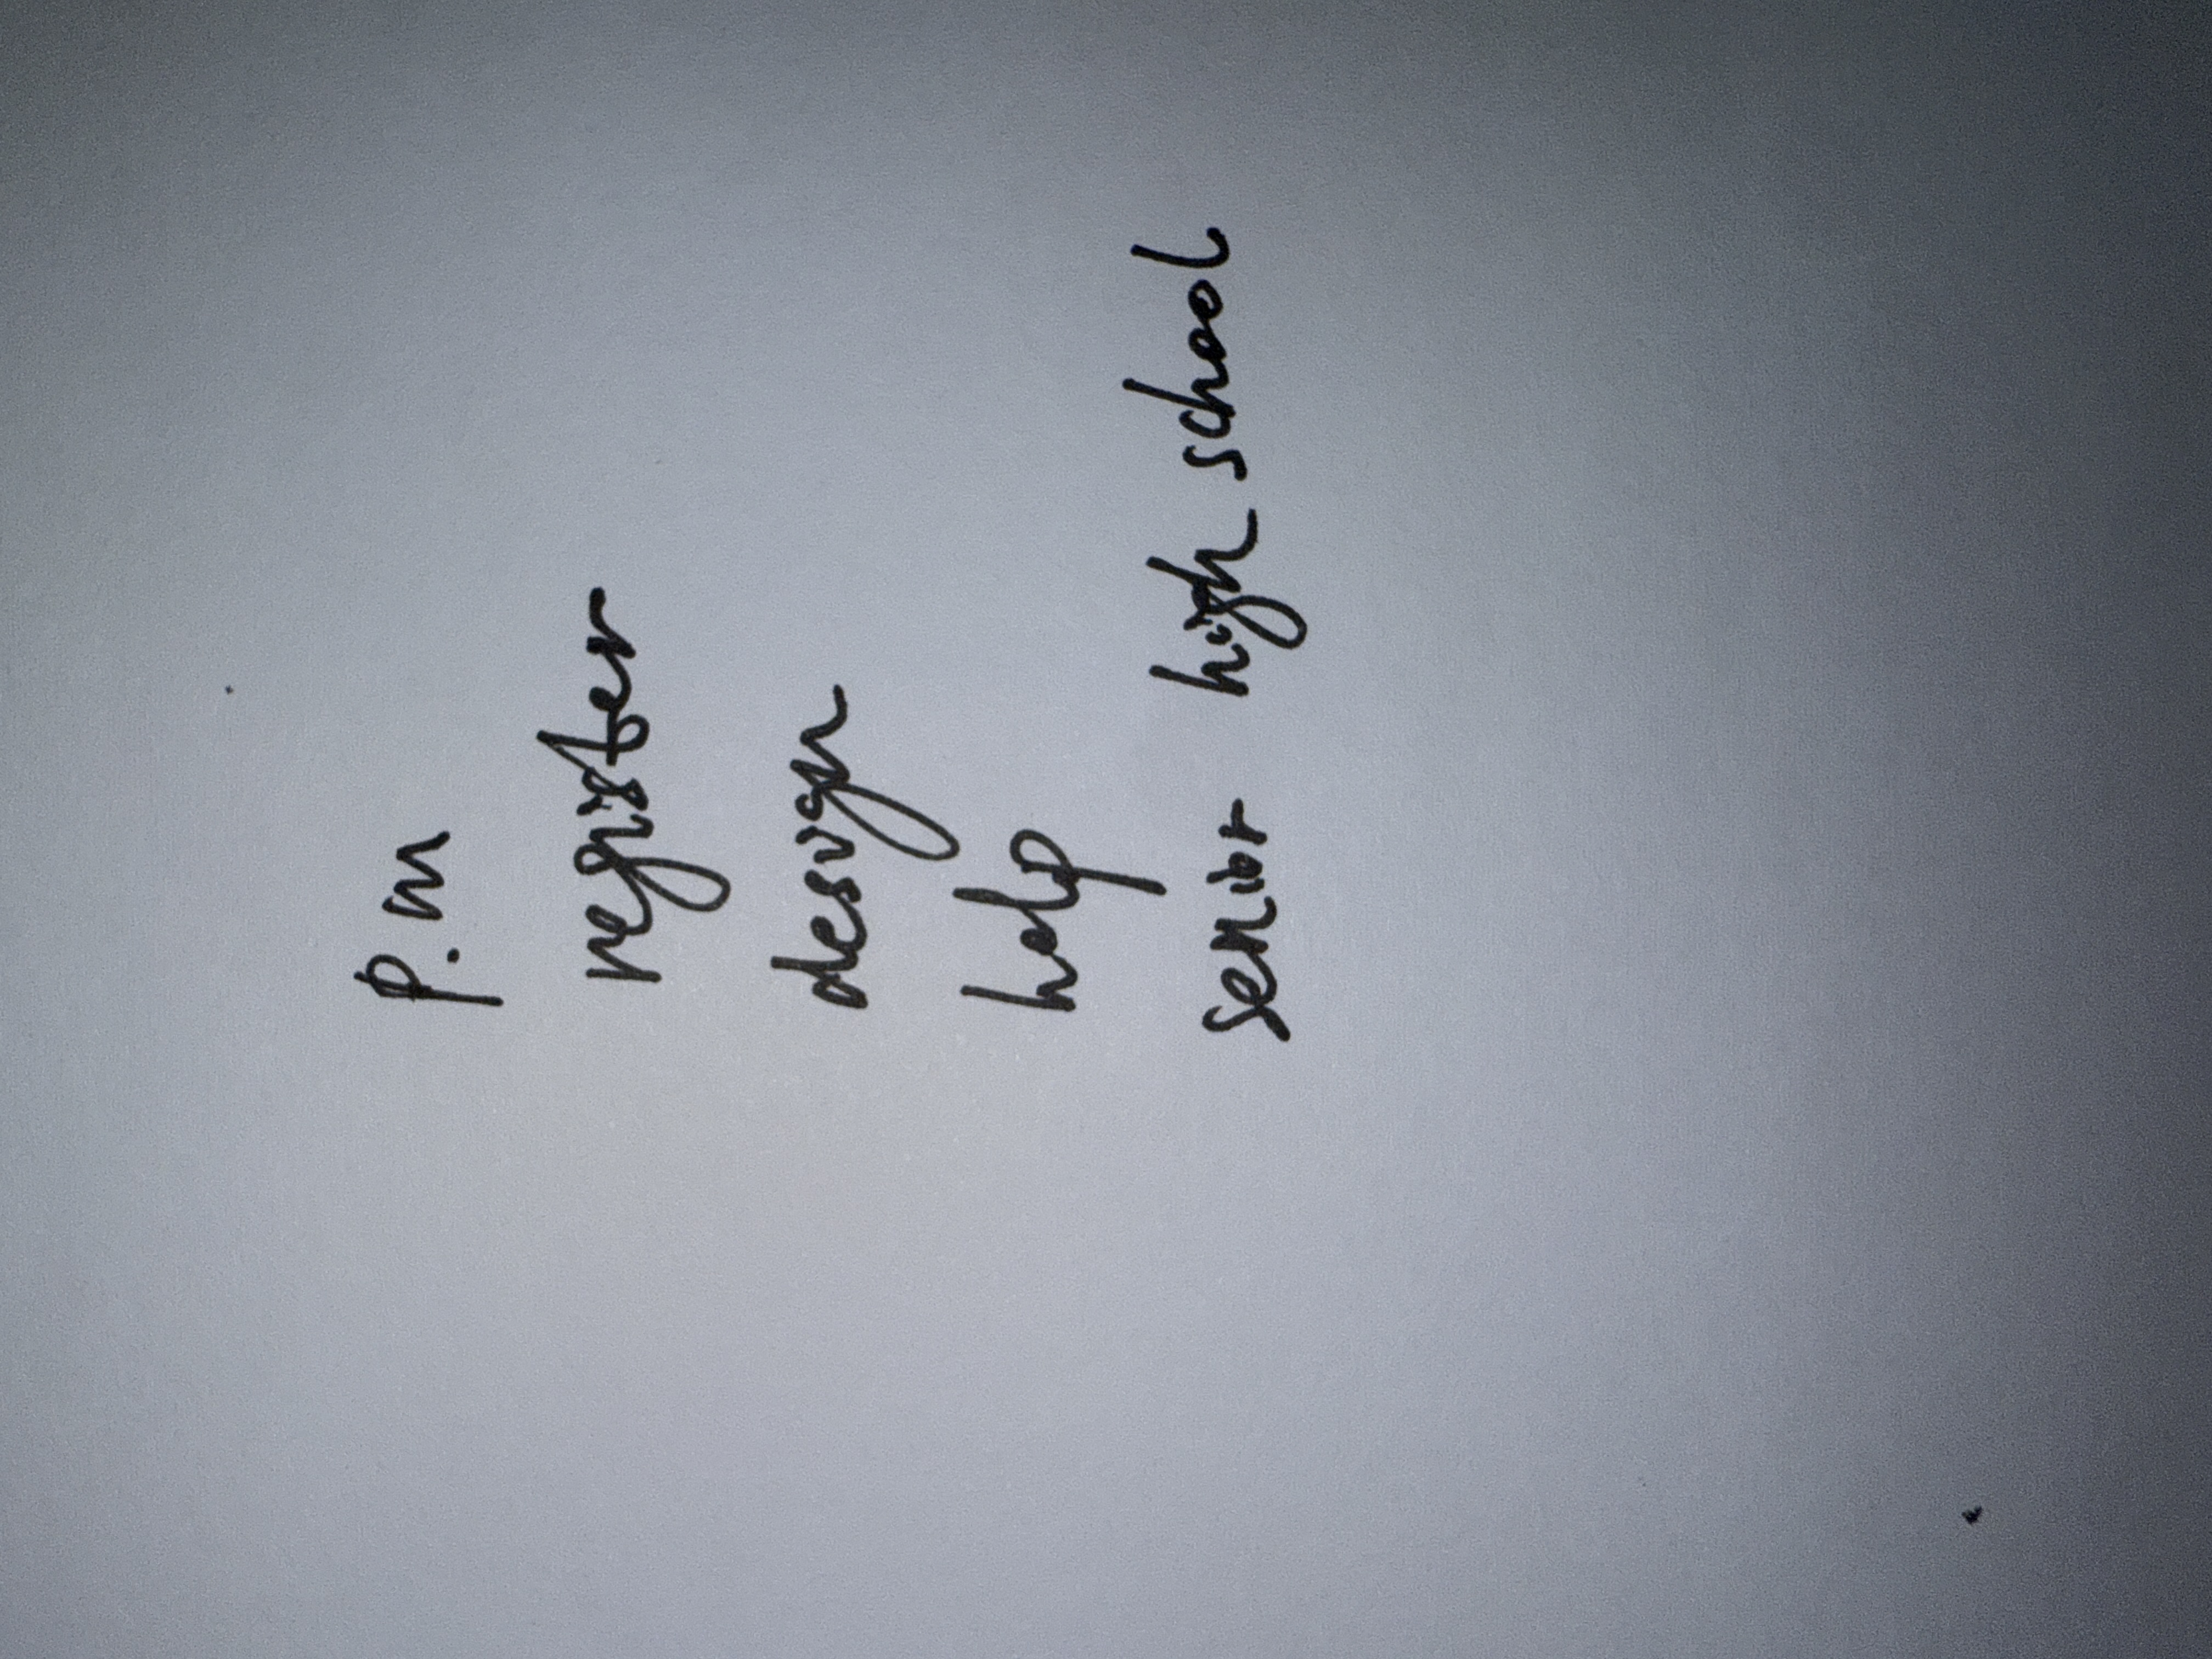 p.m
register
design
help
senior high school